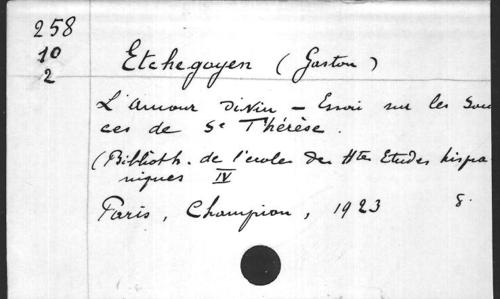 258
10
2
Etchegoyen (Gaston)
L'amour Divin – Essai sur les Sour
ces de Sᵉ Thérèse.
(Biblioth. de l'école des Htes Etudes hispa
niques IV
Paris, Champion, 1923 8.